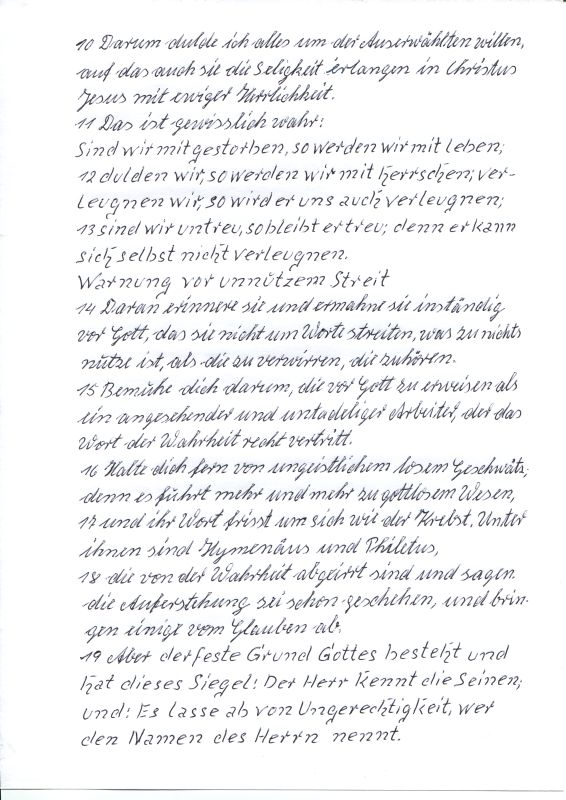 10 Darum dulde ich alles um der Auserwählten willen,
auf das auch sie die Seligkeit erlangen in Christus
Jesus mit ewiger Herrlichkeit.
11 Das ist gewisslich wahr:
Sind wir mit gestorben, so werden wir mit leben;
12 dulden wir, so werden wir mit herrschen; ver-
leugnen wir, so wird er uns auch verleugnen;
13 sind wir untreu, so bleibt er treu; denn er kann
sich selbst nicht verleugnen.
Warnung vor unnützem Streit
14 Daran erinnere sie und ermahne sie inständig
vor Gott, das sie nicht um Worte streiten, was zu nichts
nütze ist, als die zu verwirren, die zuhören.
15 Bemühe dich darum, die vor Gott zu erweisen als
ein angesehender und untadeliger Arbeiter, der das
Wort der Wahrheit recht vertritt.
16 Halte dich fern von ungeistlichem losem Geschwätz;
denn es führt mehr und mehr zu gottlosem Wesen,
17 und ihr Wort frisst um sich wie der Krebst. Unter
ihnen sind Hymenäus und Philetus,
18 die von der Wahrheit abgeirrt sind und sagen.
die Auferstehung sei schon geschehen, und brin-
gen einige vom Glauben ab.
19 Aber der feste Grund Gottes besteht und
hat dieses Siegel: Der Herr kennt die Seinen;
und: Es lasse ab von Ungerechtigkeit, wer
den Namen des Herrn nennt.